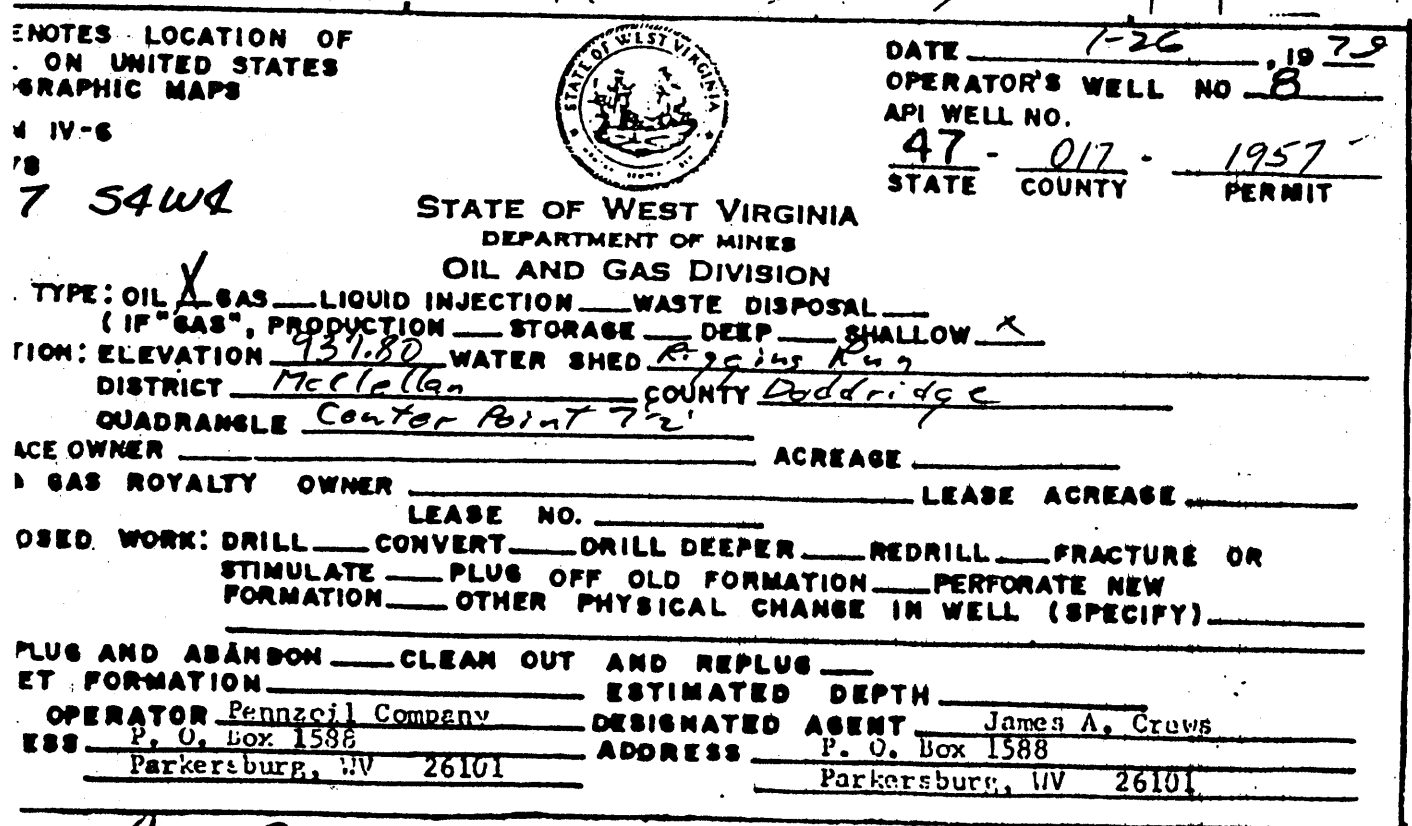 ENOTES LOCATION OF
. ON UNITED STATES
GRAPHIC MAPS
M IV-6
78
7 S4W4
STATE OF WEST VIRGINIA
DATE 1-26, 1979
OPERATOR'S WELL NO 8
API WELL NO.
47 - 017 - 1957
STATE COUNTY PERMIT
STATE OF WEST VIRGINIA
DEPARTMENT OF MINES
OIL AND GAS DIVISION
. TYPE: OIL X GAS ___ LIQUID INJECTION ___ WASTE DISPOSAL ___
(IF "GAS", PRODUCTION ___ STORAGE ___ DEEP ___ SHALLOW X
TION: ELEVATION 937.80 WATER SHED Run
DISTRICT McClellan COUNTY Doddridge
QUADRANGLE Center Point 7½'
ACE OWNER ___ ACREAGE ___
& GAS ROYALTY OWNER ___ LEASE ACREAGE ___
LEASE NO. ___
OSED WORK: DRILL ___ CONVERT ___ DRILL DEEPER ___ REDRILL ___ FRACTURE OR
STIMULATE ___ PLUG OFF OLD FORMATION ___ PERFORATE NEW
FORMATION ___ OTHER PHYSICAL CHANGE IN WELL (SPECIFY) ___
PLUG AND ABANDON ___ CLEAN OUT AND REPLUG ___
ET FORMATION ___ ESTIMATED DEPTH ___
OPERATOR Pennzoil Company DESIGNATED AGENT James A. Crews
ESS P. O. Box 1588 ADDRESS P. O. Box 1588
Parkersburg, WV 26101 Parkersburg, WV 26101